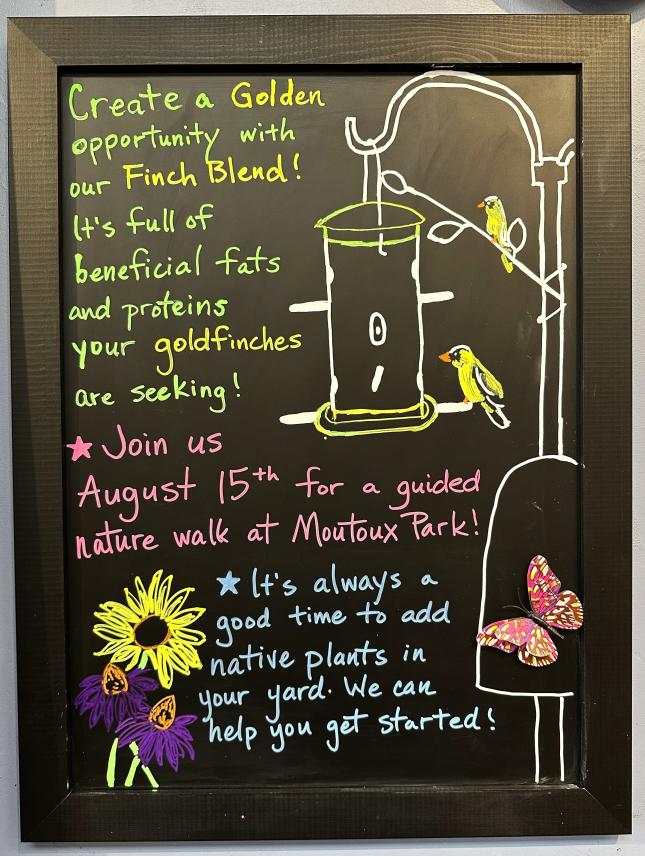 Create a Golden
opportunity with
our Finch Blend!
It's full of
beneficial fats
and proteins
your goldfinches
are seeking!
★ Join us
August 15th for a guided
nature walk at Moutoux Park!
★ It's always a
good time to add
native plants in
your yard. We can
help you get started!